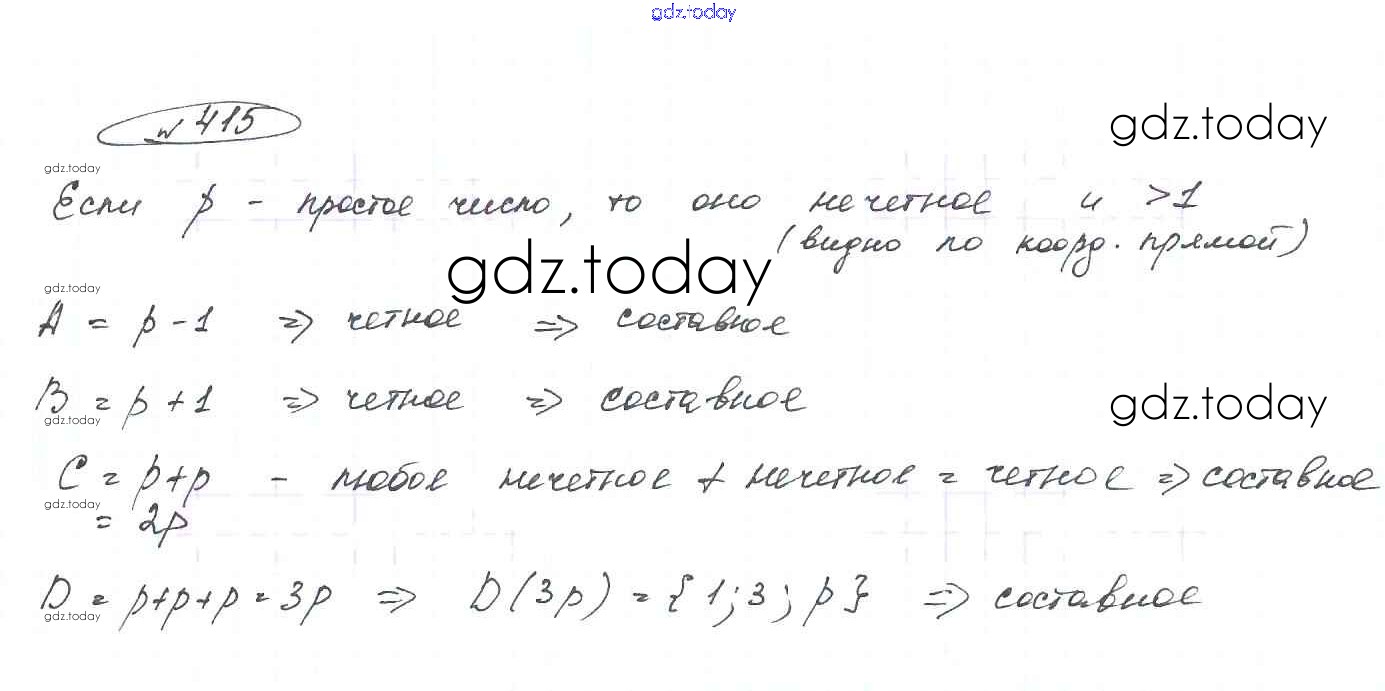 gdz.today
№ 415
gdz.today
gdz.today
Если p - простое число, то оно нечетное и >1
(видно по коорд. прямой)
gdz.today
gdz.today
A = p - 1 => четное => составное
B = p + 1 => четное => составное
gdz.today
gdz.today
C = p+p - любое нечетное + нечетное = четное => составное
gdz.today
= 2p
D = p+p+p = 3p => D(3p) = {1; 3; p} => составное
gdz.today